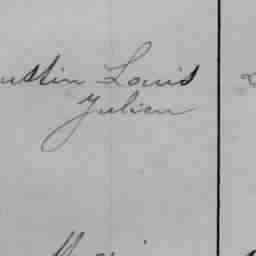 ustin Louis
Julien